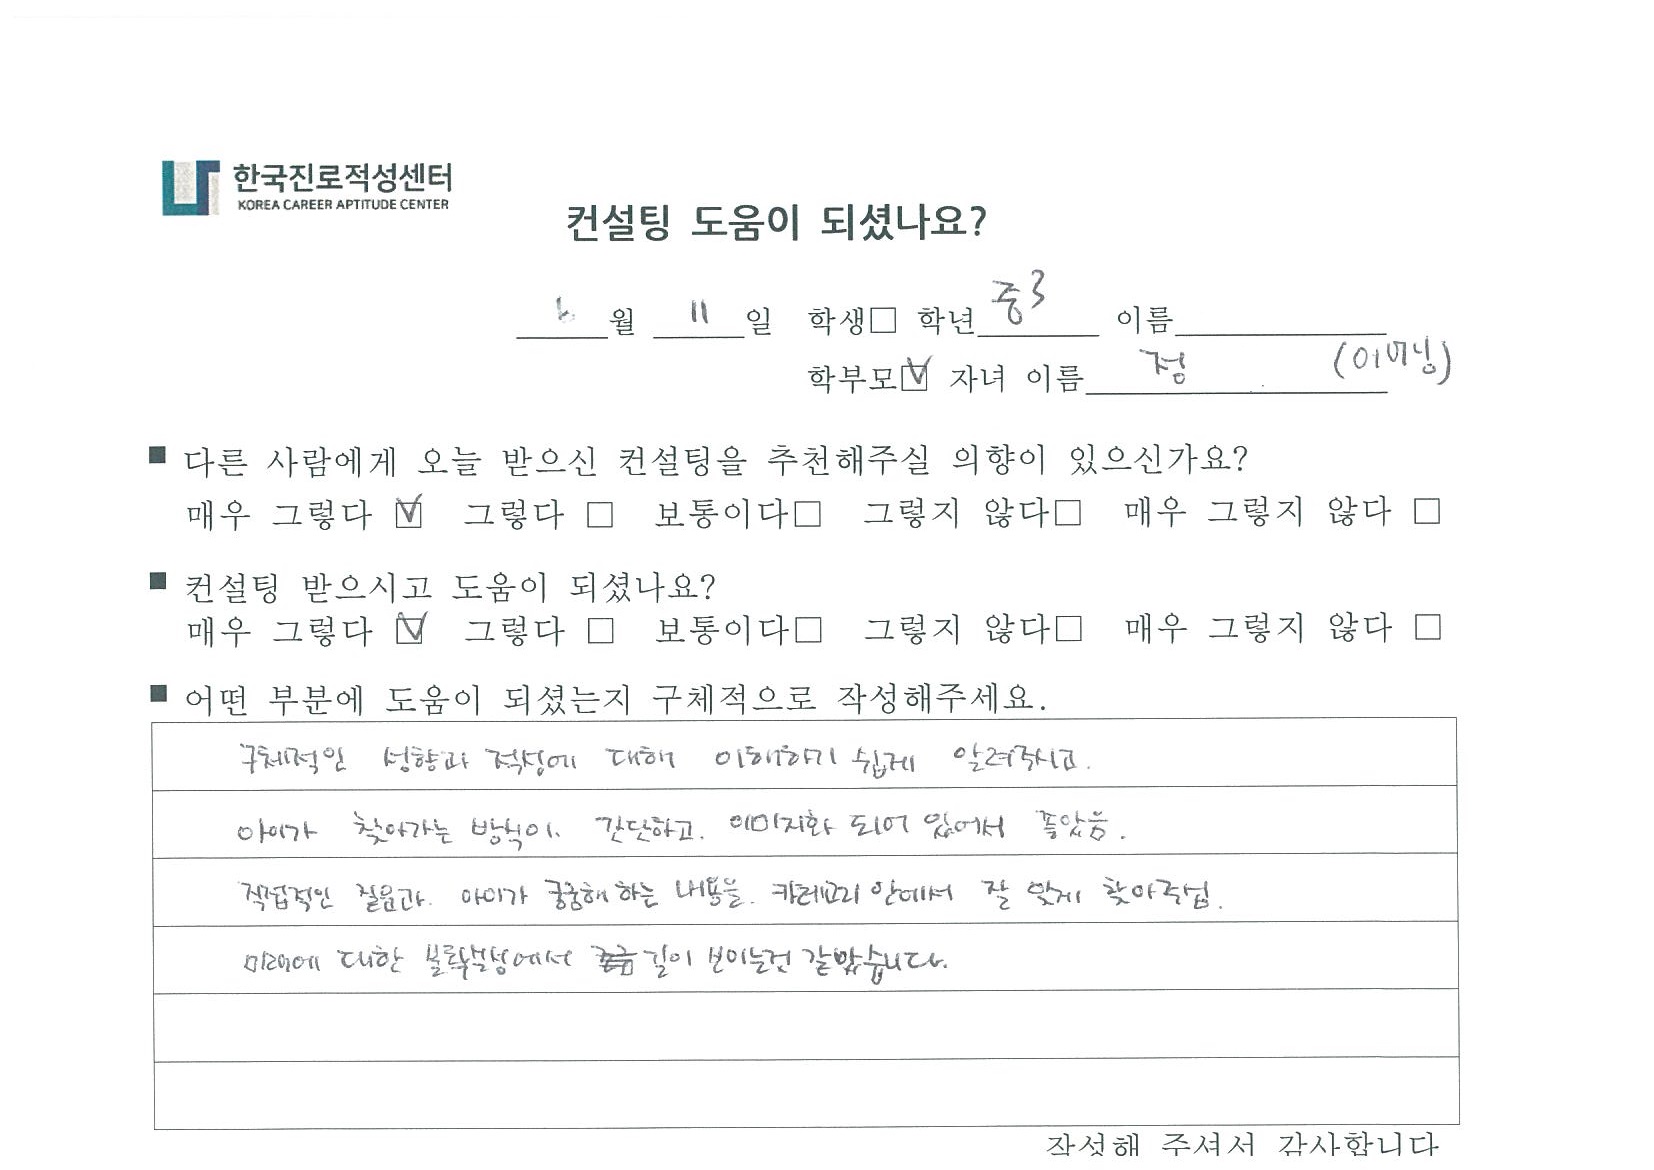 한국진로적성센터
KOREA CAREER APTITUDE CENTER
컨설팅 도움이 되셨나요?
6월 11일 학생□ 학년 중3 이름
학부모☑ 자녀 이름 정 (어머님)
■ 다른 사람에게 오늘 받으신 컨설팅을 추천해주실 의향이 있으신가요?
매우 그렇다 ☑ 그렇다 □ 보통이다□ 그렇지 않다□ 매우 그렇지 않다 □
■ 컨설팅 받으시고 도움이 되셨나요?
매우 그렇다 ☑ 그렇다 □ 보통이다□ 그렇지 않다□ 매우 그렇지 않다 □
■ 어떤 부분에 도움이 되셨는지 구체적으로 작성해주세요.
구체적인 성향과 적성에 대해 이해하기 쉽게 알려주시고.
아이가 찾아가는 방식이. 간단하고. 이미지화 되어 있어서 좋았음.
직접적인 질문과. 아이가 궁금해 하는 내용을. 카테고리 안에서 잘 맞게 찾아주심.
미래에 대한 불확실성에서 길이 보이는것 같았습니다.
작성해 주셔서 감사합니다